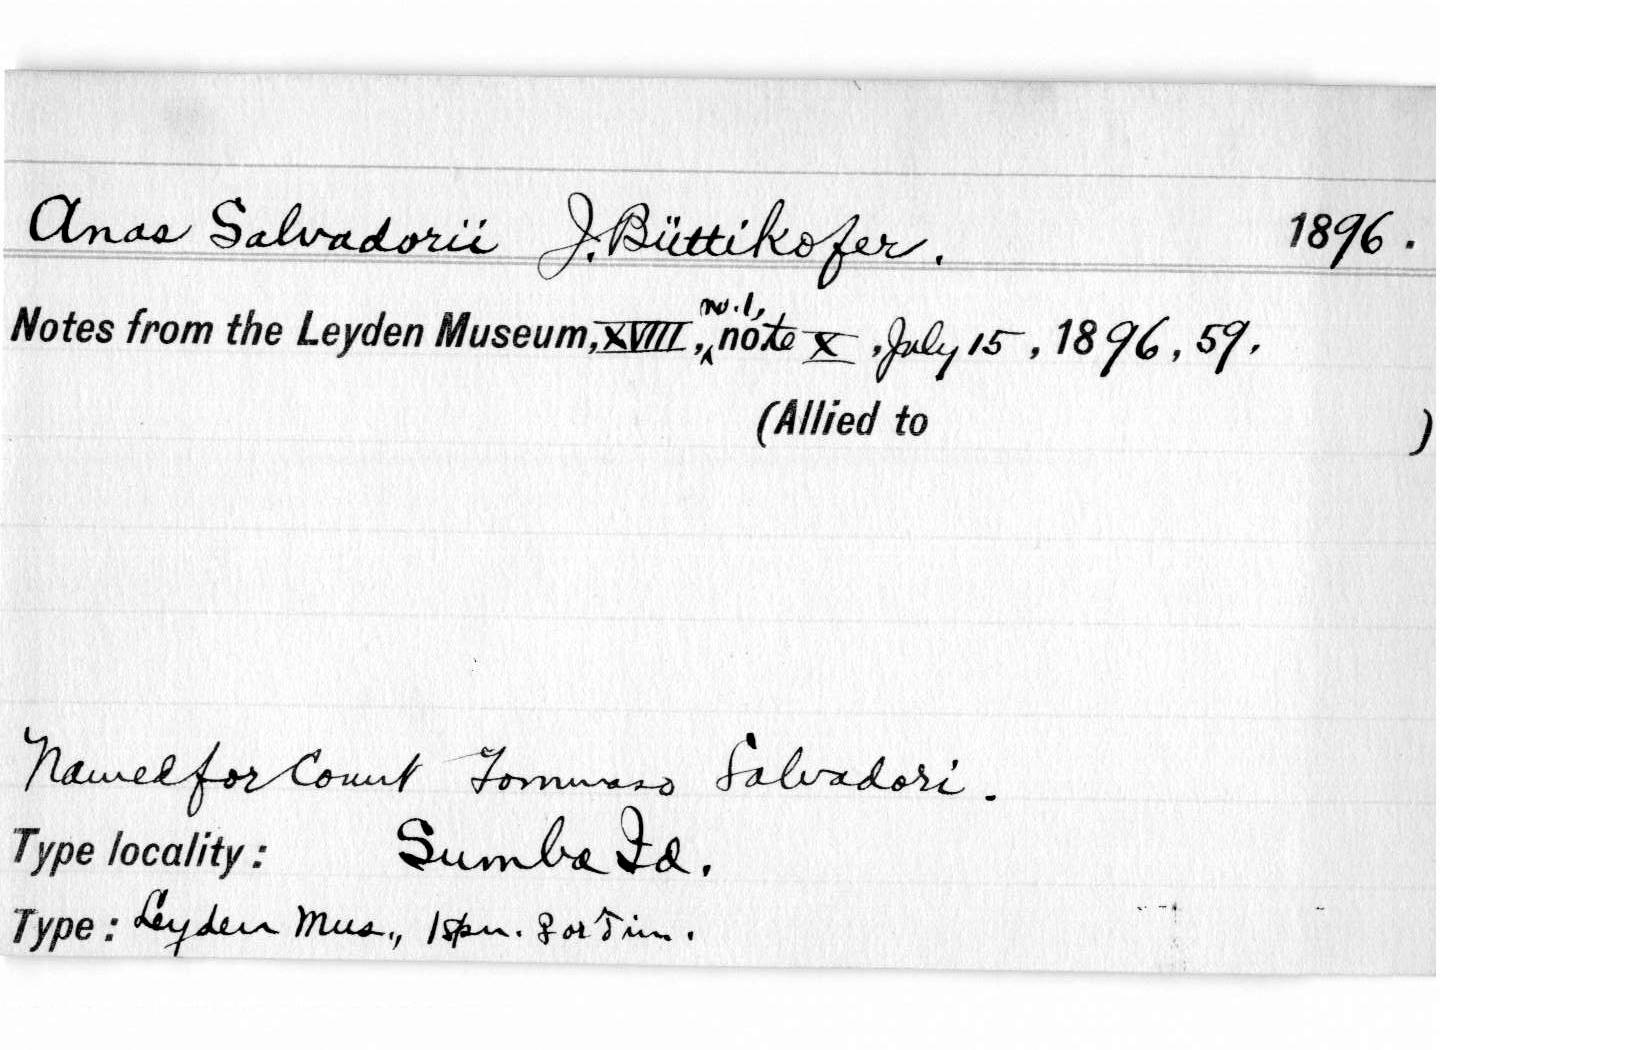 Anas Salvadorii J. Büttikofer. 1896.
no. 1,
Notes from the Leyden Museum, XVIII, ^ note X, July 15, 1896, 59.
(Allied to )
Named for Count Tommaso Salvadori.
Type locality: Sumba Id.
Type: Leyden Mus., 1 spn. ♀ or ♂ im.